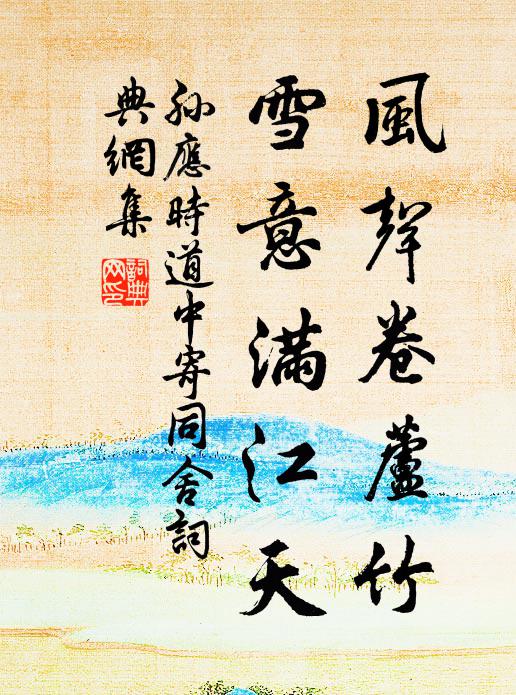 風聲卷蘆竹
雪意滿江天
孫應時道中寄同舍詞
典網集
詞典
网印